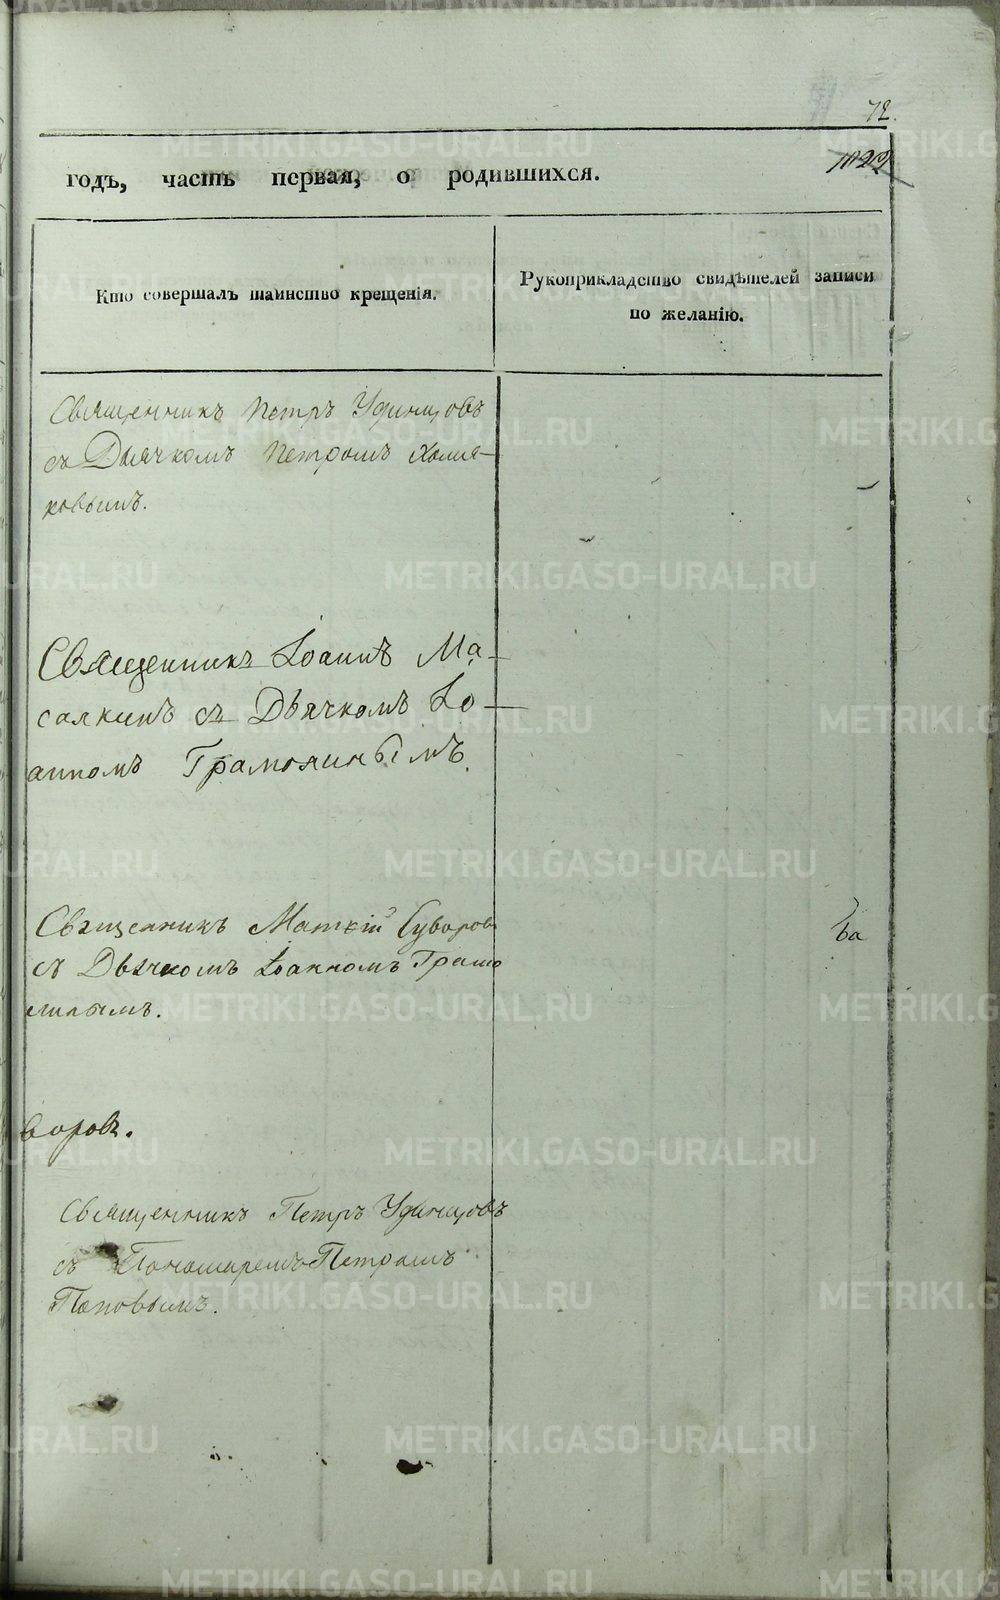 72.
1022
годъ, часть первая, о родившихся.
Кто совершалъ таинство крещенія.
Рукоприкладство свидѣтелей записи
по желанію.
Священникъ Петръ Удинцовъ
съ Дьячкомъ Петромъ Холмя-
ковымъ.
Священникъ Іоаннъ Ма-
салкинъ съ Дьячкомъ Іо-
анномъ Грамолинымъ.
Священникъ Матѳій Суворовъ
съ Дьячкомъ Іоанномъ Грамо
линымъ.
воровъ.
Священникъ Петръ Удинцовъ
съ Пономаремъ Петромъ
Поповымъ.
METRIKI.GASO-URAL.RU